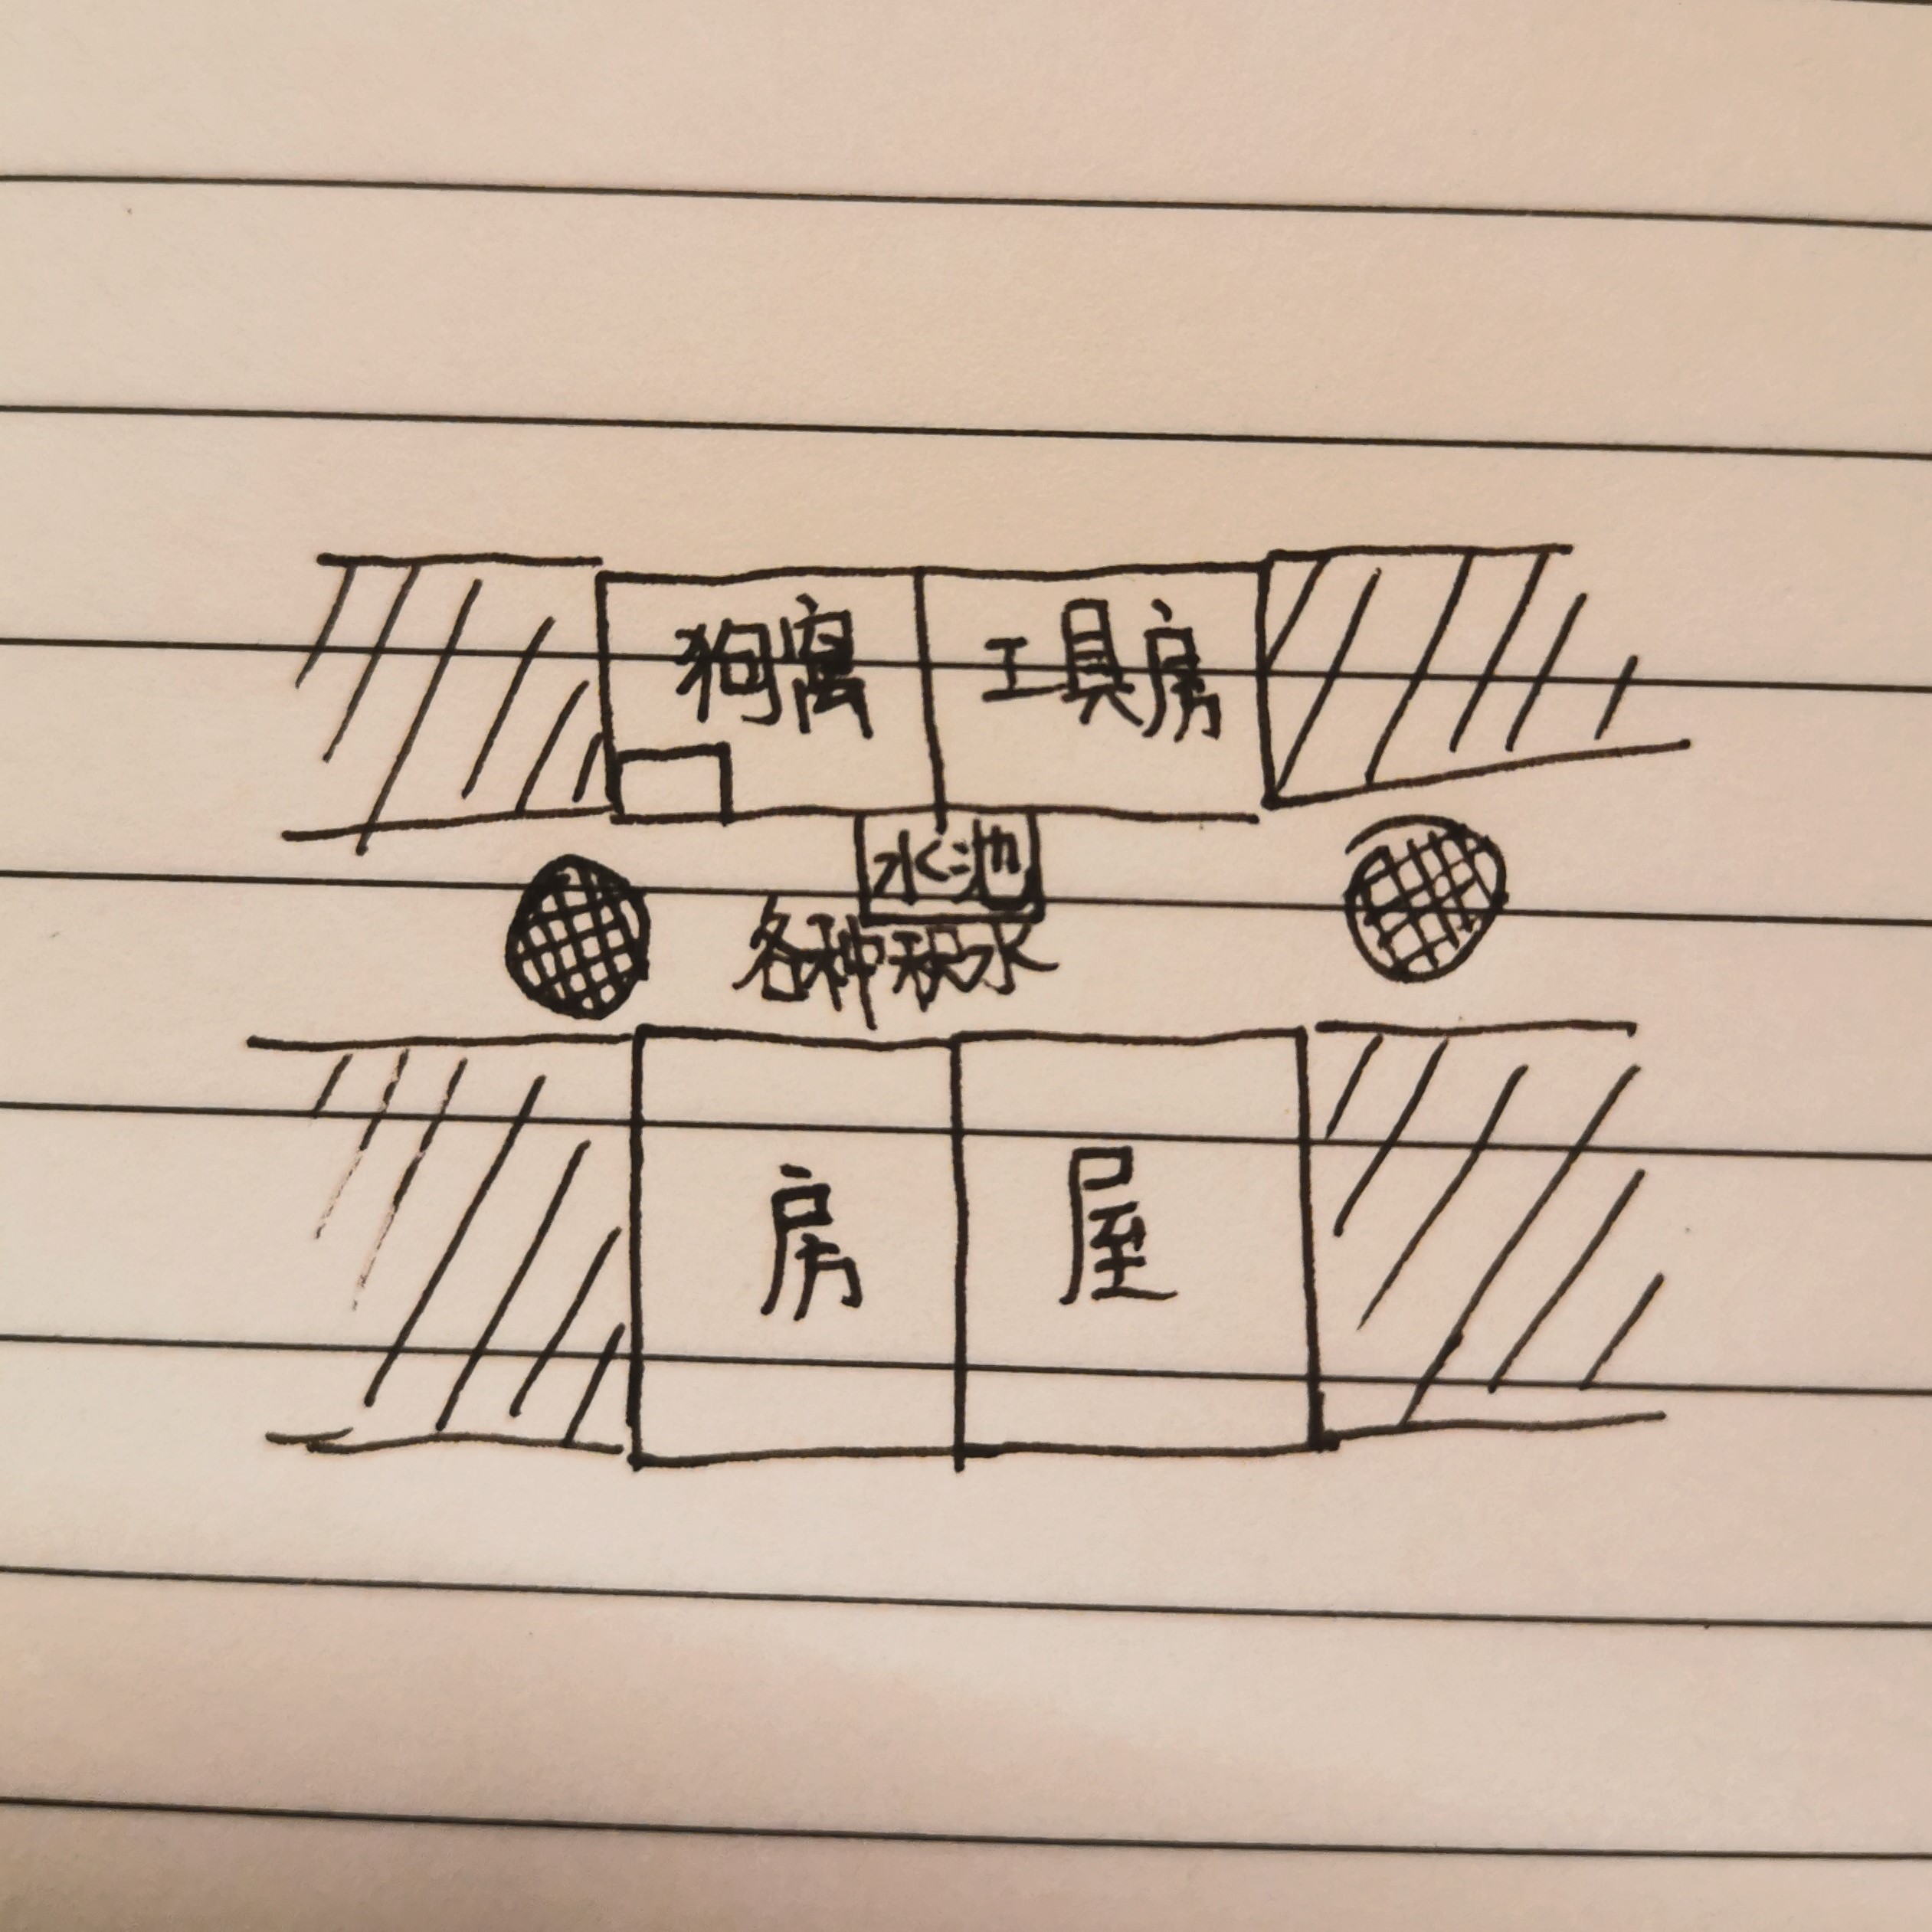 狗窝 工具房
水池
各种积水
房 屋